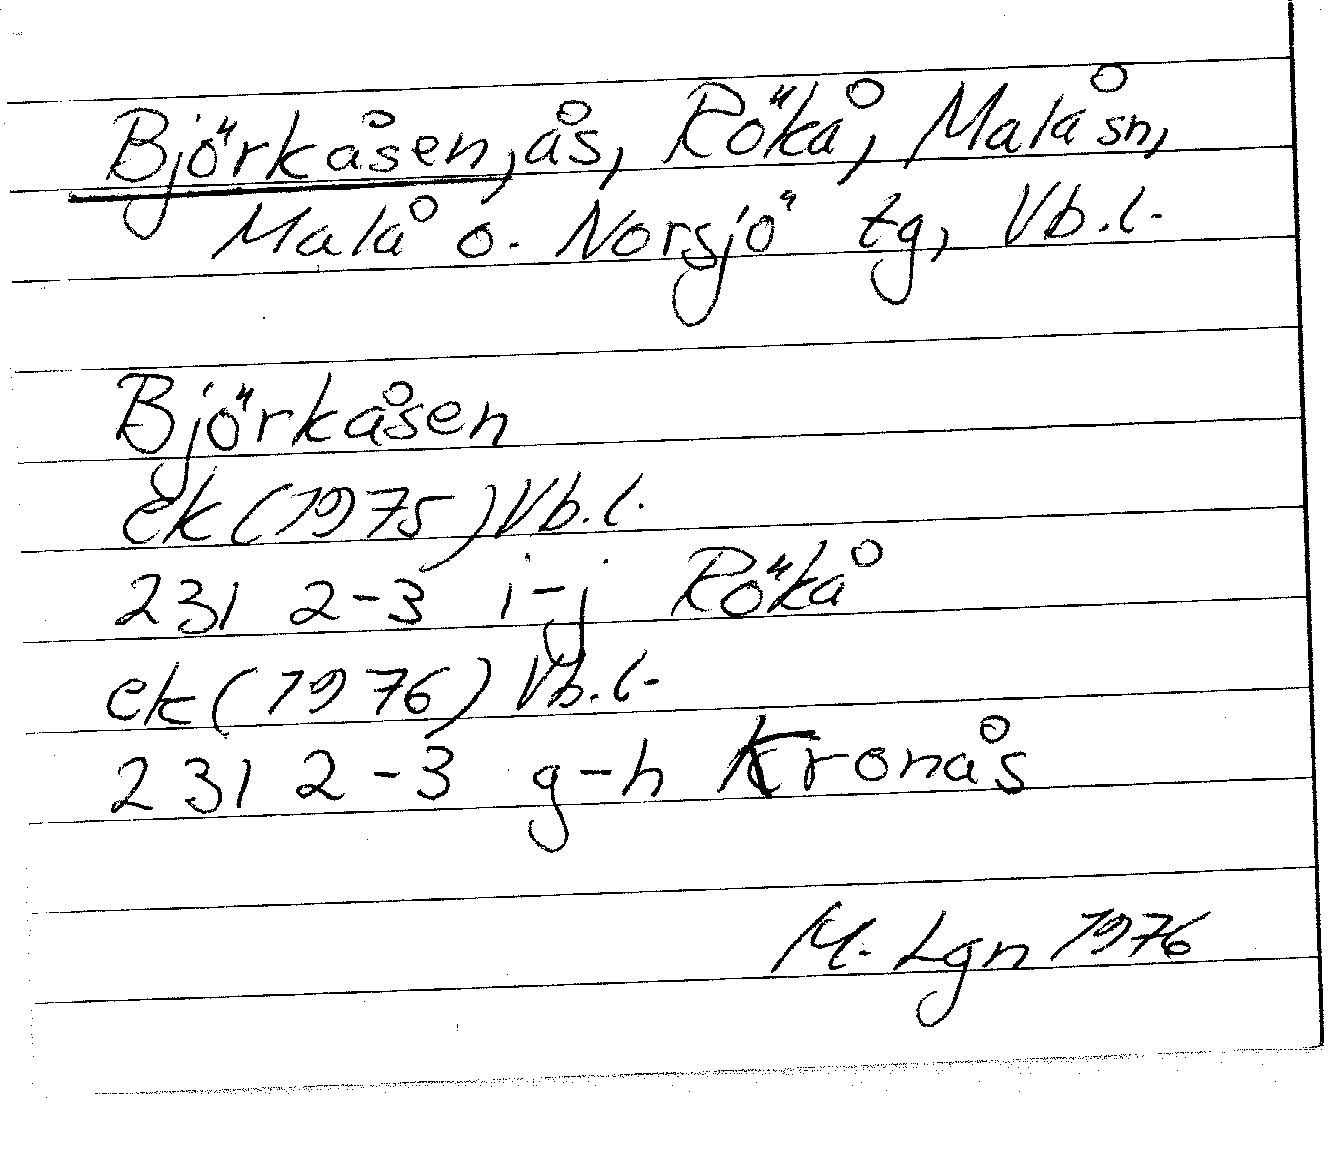 Björkåsen, ås, Rökå, Malå sn,
Malå o. Norsjö tg, Vb.l.
Björkåsen
ek (1975) Vb.l.
231 2-3 i-j Rökå
ek (1976) Vb.l.
231 2-3 g-h Kronås
M. Lgn 1976